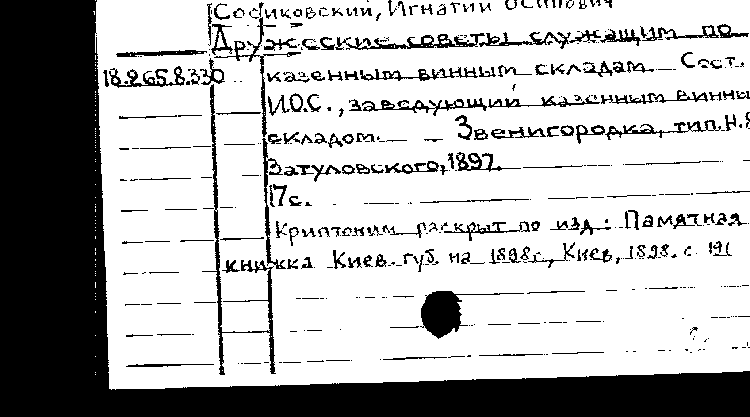 Сосиковский, Игнатий Осипович
Дружеские советы служащим по
18.265.8.330 казенным винным складам. Сост.
И.О.С., заведующий казенным винны
складом. – Звенигородка, тип. Н.
Затуловского, 1897.
17с.
Криптоним раскрыт по изд: Памятная
книжка Киев. губ на 1898г., Киев, 1898. с 191